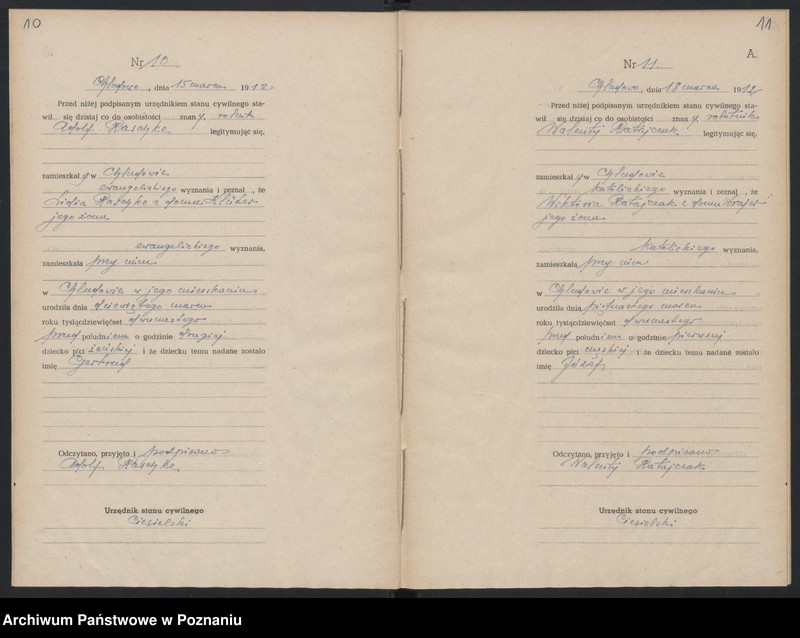 10
Nr 10
Chludowo, dnia 15 marca 1912
Przed niżej podpisanym urzędnikiem stanu cywilnego sta-
wił się dzisiaj co do osobistości znany, rolnik
Adolf legitymując się,
zamieszkały w Chludowie
ewangelickiego wyznania i zeznał, że
Lidia z domu
jego żona
ewangelickiego wyznania,
zamieszkała przy nim
w Chludowie w jego mieszkaniu
urodziła dnia dziewiątego marca
roku tysiącdziewięćset dwunastego
przed południem o godzinie drugiej
dziecko płci żeńskiej i że dziecku temu nadane zostało
imię Gertrud
Odczytano, przyjęto i podpisano
Adolf
Urzędnik stanu cywilnego
Ciesielski
11
A.
Nr 11.
Chludowo, dnia 18 marca 1912
Przed niżej podpisanym urzędnikiem stanu cywilnego sta-
wił się dzisiaj co do osobistości znany, robotnik
Walenty Ratajczak legitymując się,
zamieszkały w Chludowie
katolickiego wyznania i zeznał, że
Wiktoria Ratajczak z domu
jego żona
katolickiego wyznania,
zamieszkała przy nim
w Chludowie w jego mieszkaniu
urodziła dnia piętnastego marca
roku tysiącdziewięćset dwunastego
przed południem o godzinie pierwszej
dziecko płci męskiej i że dziecku temu nadane zostało
imię Józef
Odczytano, przyjęto i podpisano
Walenty Ratajczak
Urzędnik stanu cywilnego
Ciesielski
Archiwum Państwowe w Poznaniu